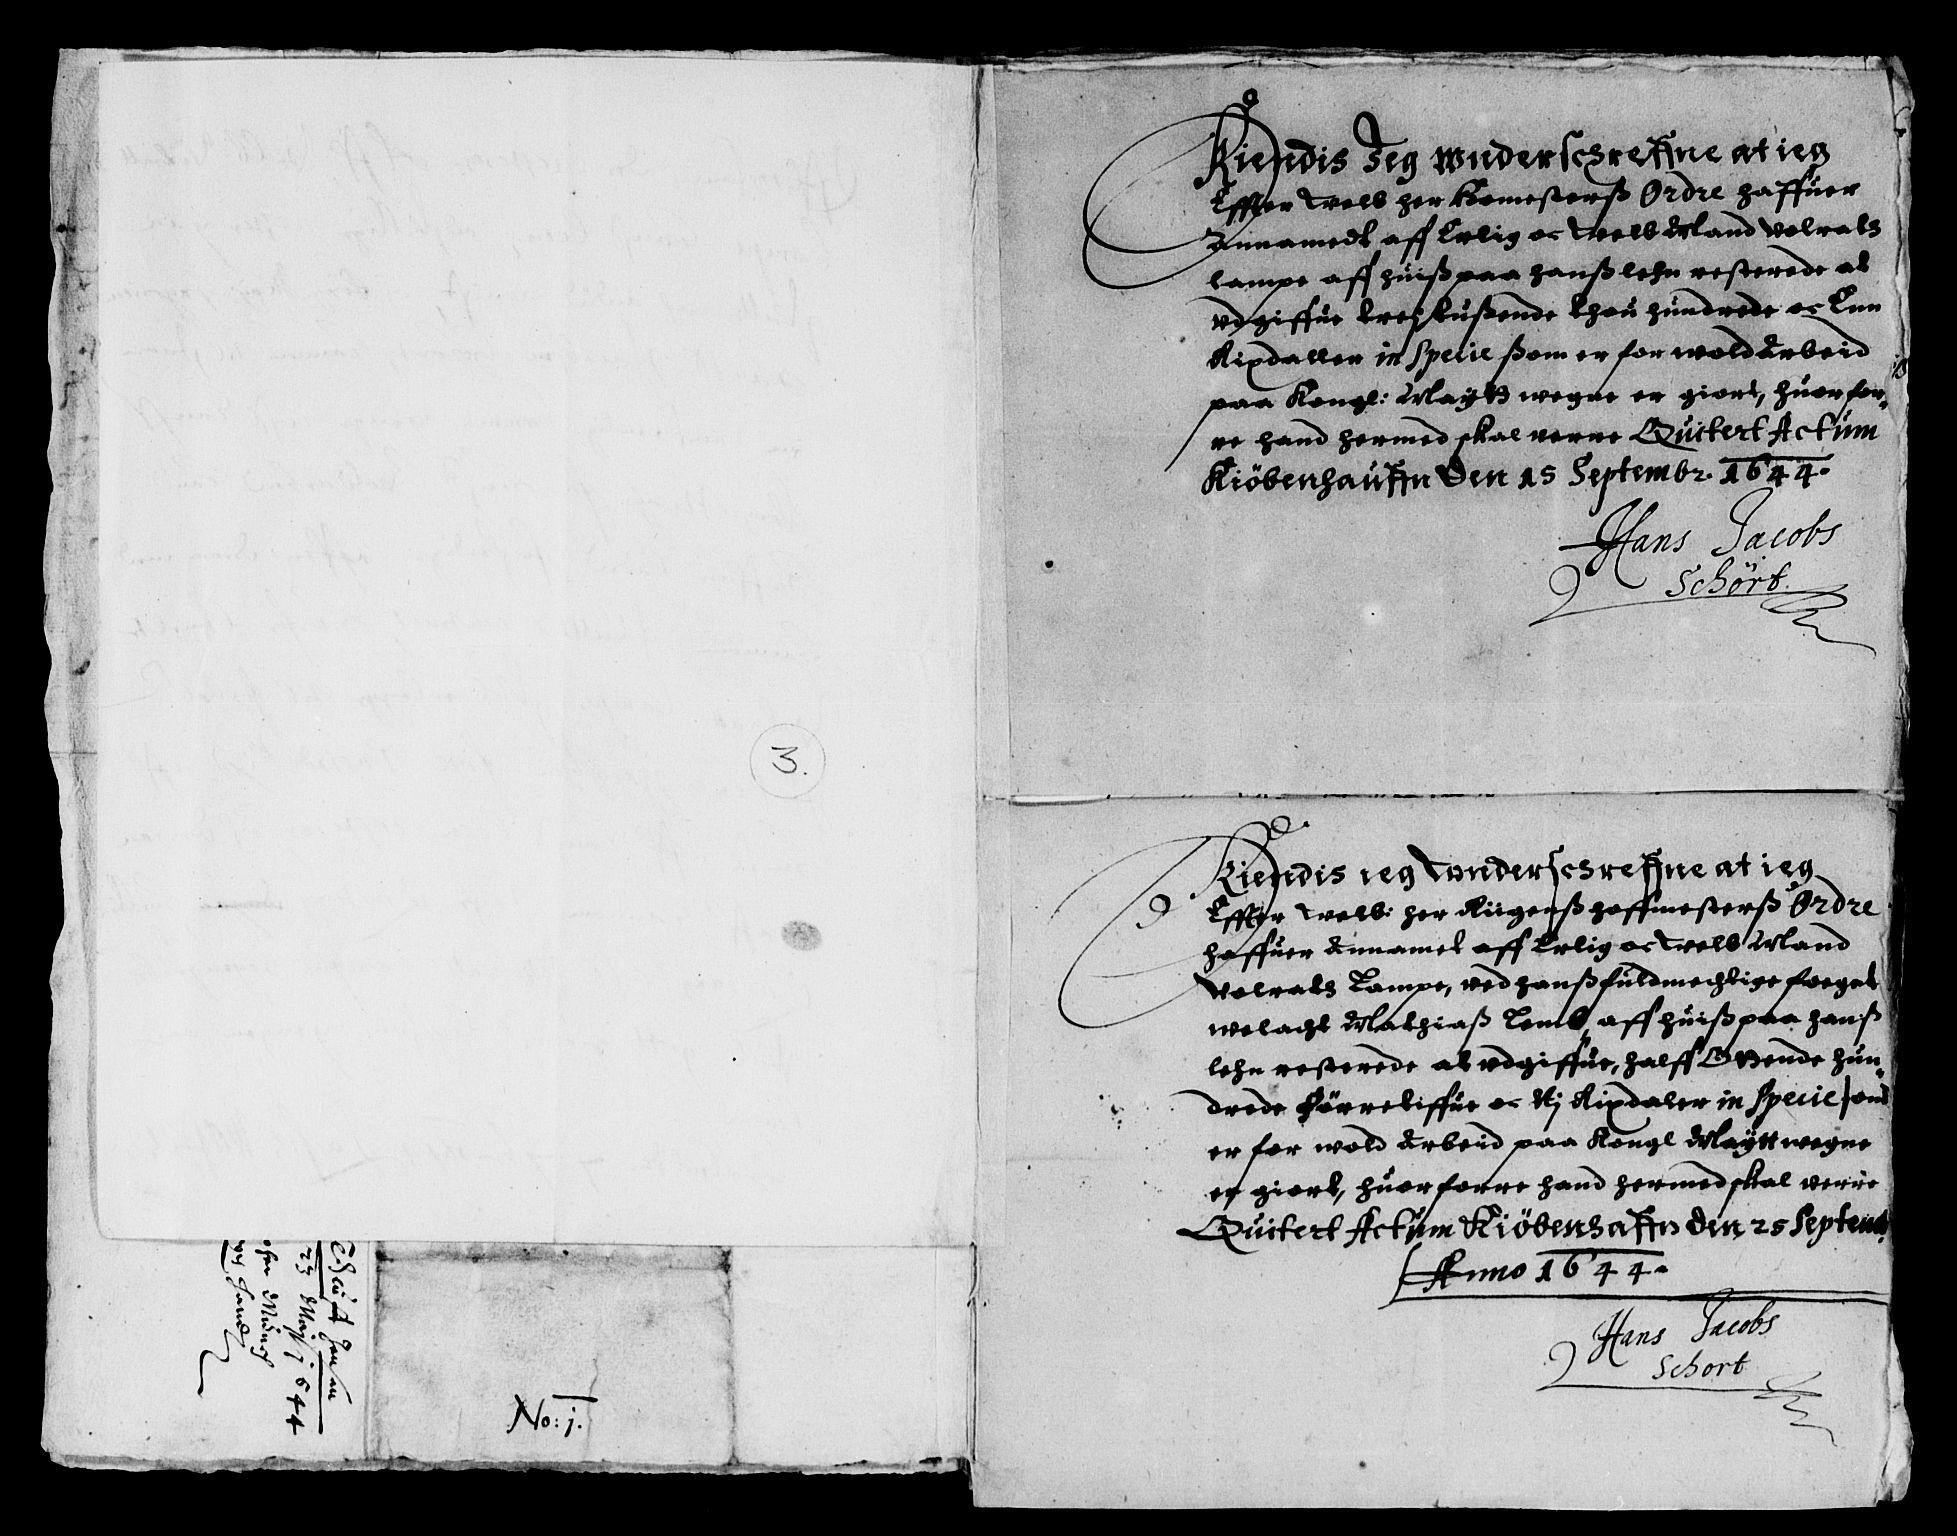 3.
No: 1.
23 Maij 1644
Kiendis Jeg Wnderschreffne at ieg
Effter Welb her Homesterß Ordre haffuer
Annamedt aff Erlig oc Welb Mand Volrats
lampe aff huiß paa hanß lehn resterede at
vdgiffue trej tußende thou hundrede oc Enn
Rixdaller in Specie ßom er for wold Arbeid
paa Kongl: Maytts wegne er giort, huorfor-
re hand hermed skal verre Quitert Actum
Kiöbenhauffn Den 15 Septembr. 1644.
Hans Jacobs
Schört
Kiendis ieg Vnderschreffne at ieg
Effter Welb: her Riigenß hoffmesterß Ordre
haffuer Annamet aff Erlig oc Welb Mand
Volrats Lampe, ved hanß fuldmechtige foeget
welacht Mathiaß Temb, aff huiß paa hanß
lehn resterede at vdgiffue, halff Ottende hun-
drede Förretiffue oc Vj Rixdaler in Specie som
er for wold Arbeid paa Kongl Maytt wegne
er giort, huorforre hand hermed skal verre
Quitert Actum Kiöbenhaffn den 25 Septemb
Anno 1644.
Hans Jacobs
Schort